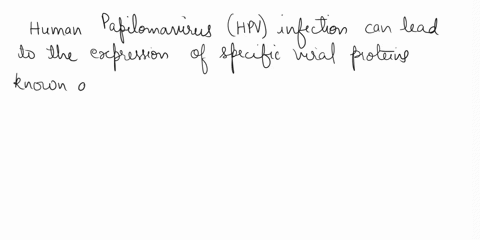 Human Papilomavirus (HPV) infection can lead
to the expression of specific viral proteins
known o